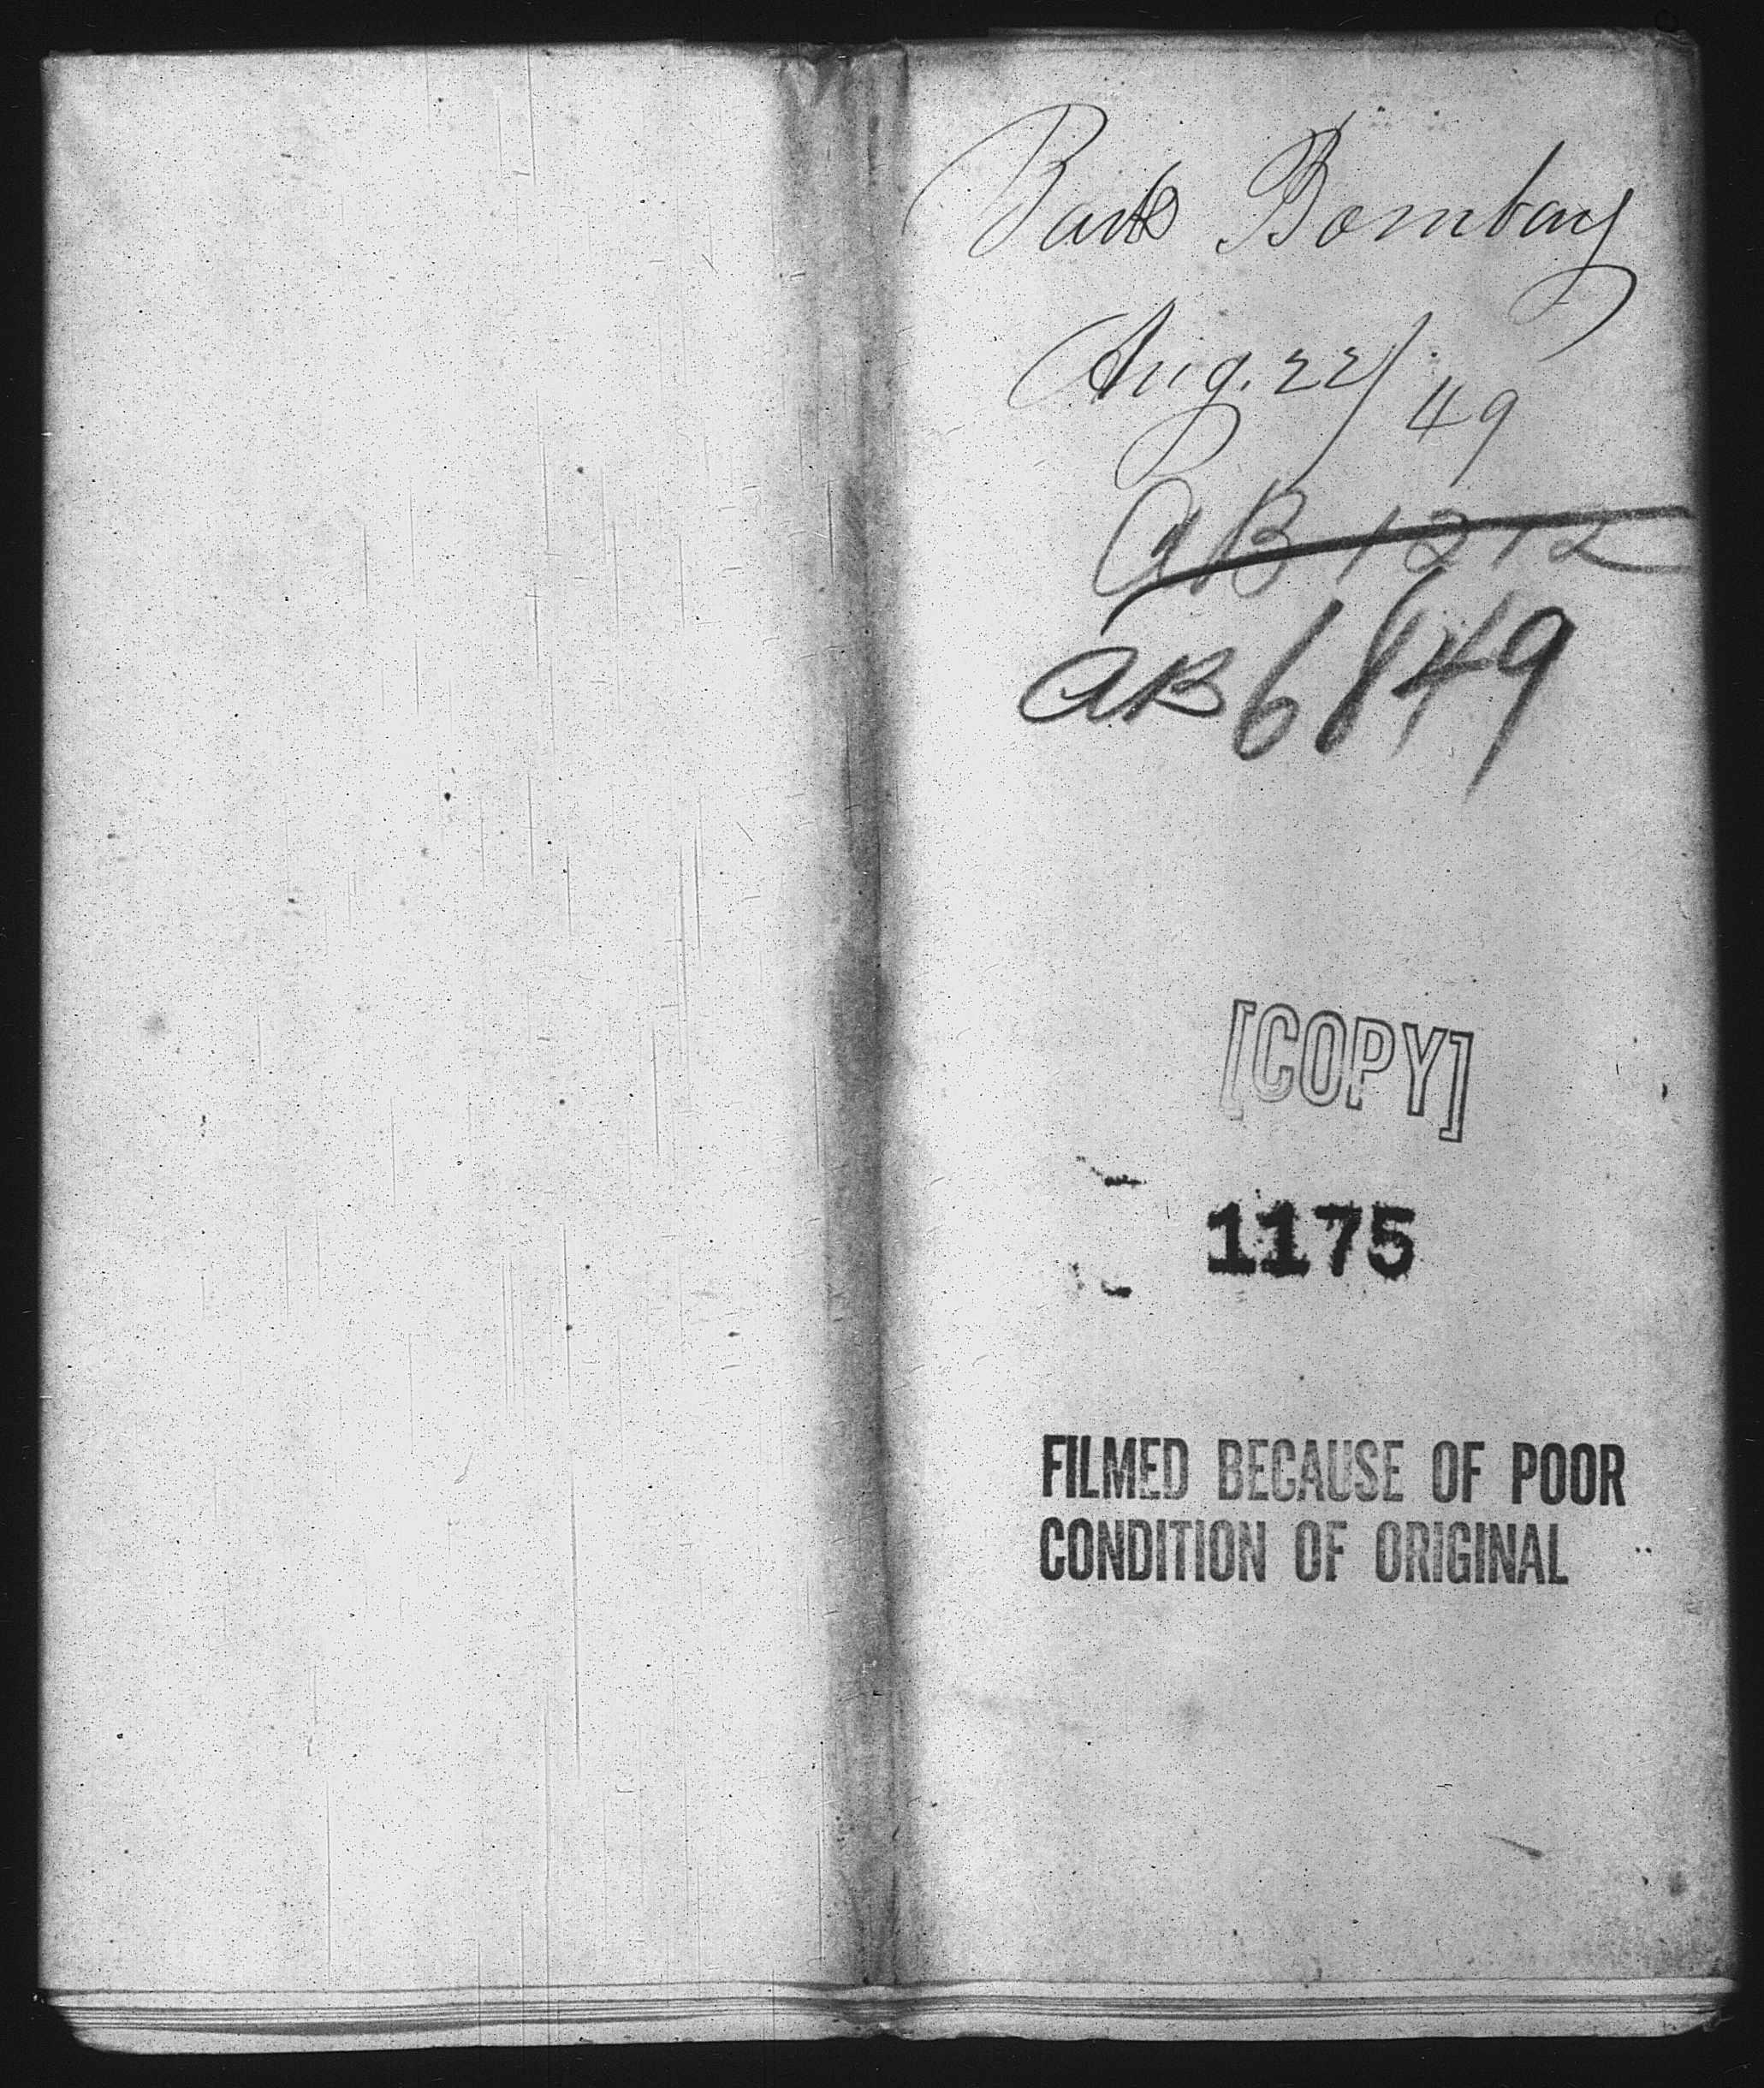 Bark Bombay
Aug. 22/49
AB 1212
AB 6849
[COPY]
1175
FILMED BECAUSE OF POOR
CONDITION OF ORIGINAL